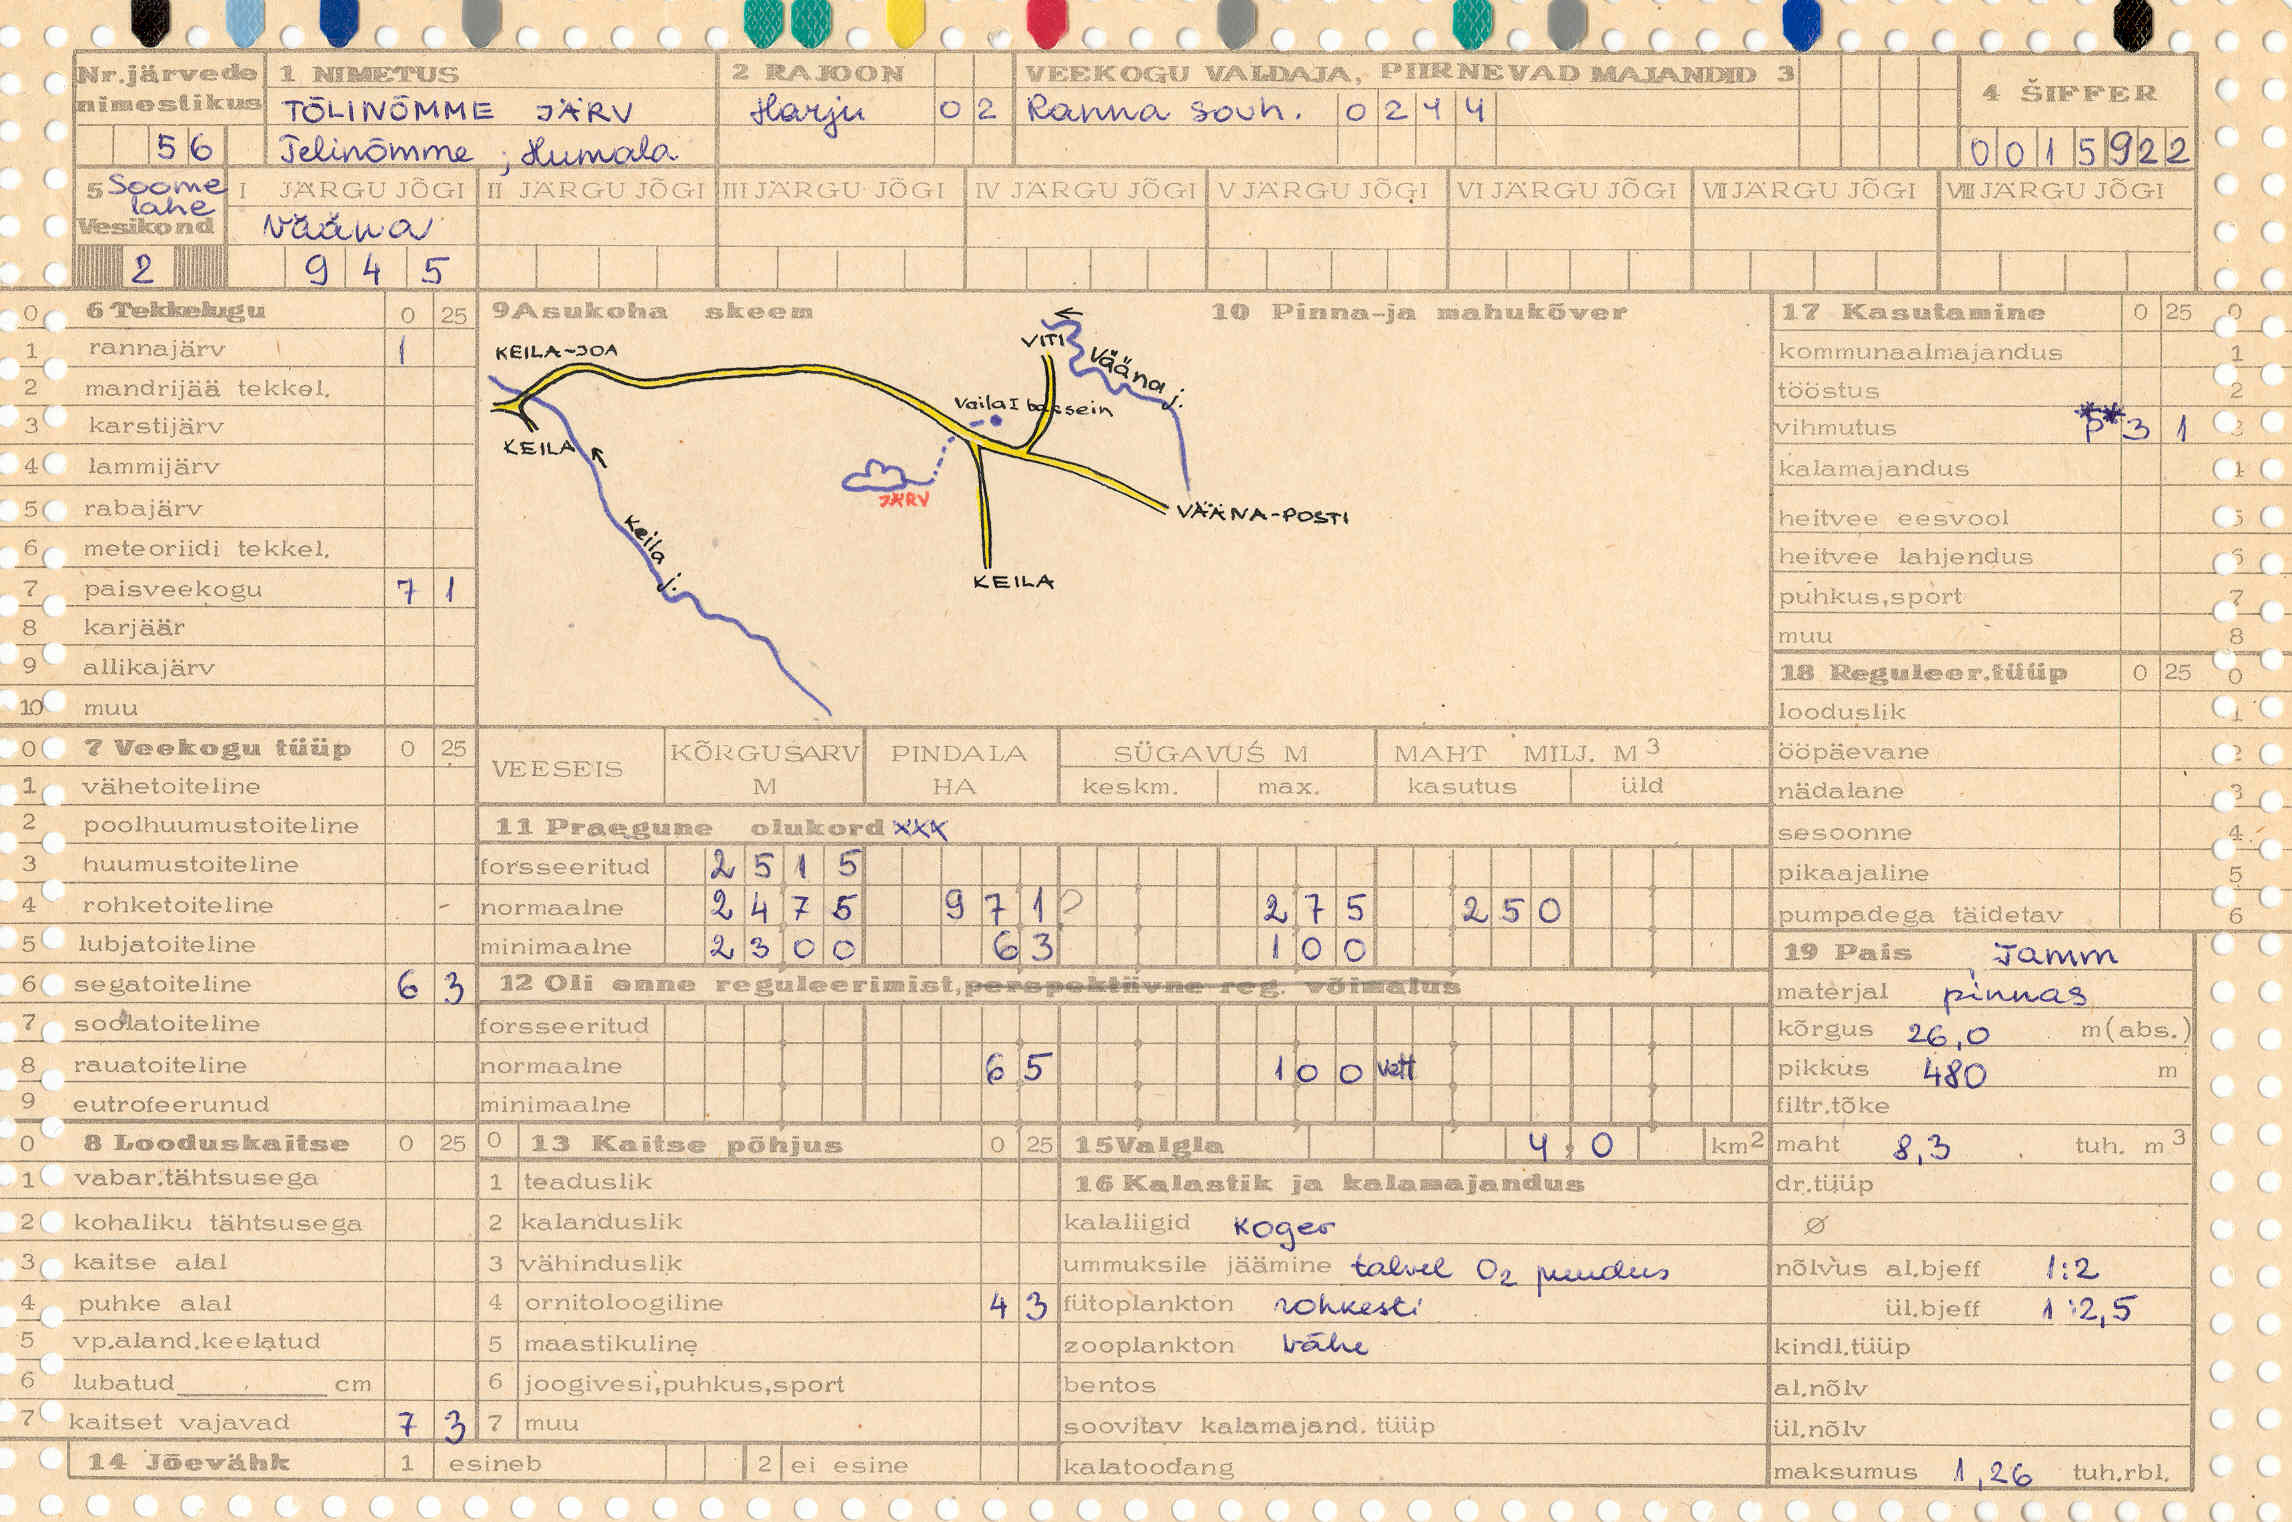 Nr.järvede nimestikus
56
1 NIMETUS
TÕLINÕMME JÄRV
Telinõmme ; Humala
2 RAJOON
Harju 02
VEEKOGU VALDAJA, PIIRNEVAD MAJANDID 3
Ranna sovh. 0244
4 ŠIFFER
0015922
5 Soome lahe
Vesikond
2
I JÄRGU JÕGI
Vääna
945
II JÄRGU JÕGI
III JÄRGU JÕGI
IV JÄRGU JÕGI
V JÄRGU JÕGI
VI JÄRGU JÕGI
VII JÄRGU JÕGI
VIII JÄRGU JÕGI
0 6 Tekkelugu 0 25
1 rannajärv 1
2 mandrijää tekkel.
3 karstijärv
4 lammijärv
5 rabajärv
6 meteoriidi tekkel.
7 paisveekogu 7 1
8 karjäär
9 allikajärv
10 muu
0 7 Veekogu tüüp 0 25
1 vähetoiteline
2 poolhuumustoiteline
3 huumustoiteline
4 rohketoiteline -
5 lubjatoiteline
6 segatoiteline 6 3
7 soolatoiteline
8 rauatoiteline
9 eutrofeerunud
0 8 Looduskaitse 0 25
1 vabar.tähtsusega
2 kohaliku tähtsusega
3 kaitse alal
4 puhke alal
5 vp.aland.keelatud
6 lubatud cm
7 kaitset vajavad 7 3
14 Jõevähk 1 esineb 2 ei esine
9 Asukoha skeem
10 Pinna-ja mahukõver
KEILA-JOA
KEILA
Keila j.
VITI
Vääna j.
Vaila I bassein
JÄRV
VÄÄNA-POSTI
KEILA
VEESEIS
KÕRGUSARV M
PINDALA HA
SÜGAVUS M
keskm. max.
MAHT MILJ. M3
kasutus üld
11 Praegune olukord xxx
forsseeritud 2515
normaalne 2475 971? 275 250
minimaalne 2300 63 100
12 Oli enne reguleerimist, perspektiivne reg. võimalus
forsseeritud
normaalne 65 100 vett
minimaalne
0 13 Kaitse põhjus 0 25
1 teaduslik
2 kalanduslik
3 vähinduslik
4 ornitoloogiline 4 3
5 maastikuline
6 joogivesi,puhkus,sport
7 muu
15 Valgla 4,0 km2
16 Kalastik ja kalamajandus
kalaliigid Koger
ummuksile jäämine talvel O2 puudus
fütoplankton rohkesti
zooplankton vähe
bentos
soovitav kalamajand. tüüp
kalatoodang
17 Kasutamine 0 25 0
kommunaalmajandus 1
tööstus 2
vihmutus p** 3 1 3
kalamajandus 4
heitvee eesvool 5
heitvee lahjendus 6
puhkus,sport 7
muu 8
18 Reguleer.tüüp 0 25 0
looduslik 1
ööpäevane 2
nädalane 3
sesoonne 4
pikaajaline 5
pumpadega täidetav 6
19 Pais Tamm
materjal pinnas
kõrgus 26,0 m(abs.)
pikkus 480 m
filtr.tõke
maht 8,3 tuh. m3
dr.tüüp
Ø
nõlvus al.bjeff 1:2
ül.bjeff 1:2,5
kindl.tüüp
al.nõlv
ül.nõlv
maksumus 1,26 tuh.rbl.